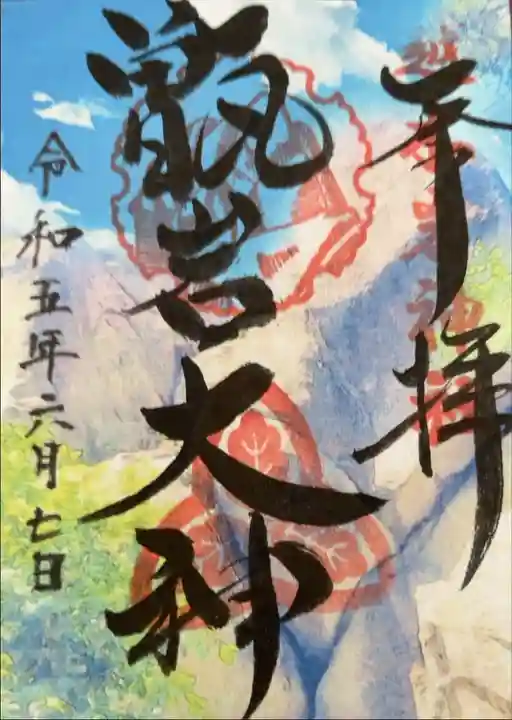 奉拝
甑岩大神
令和五年六月七日